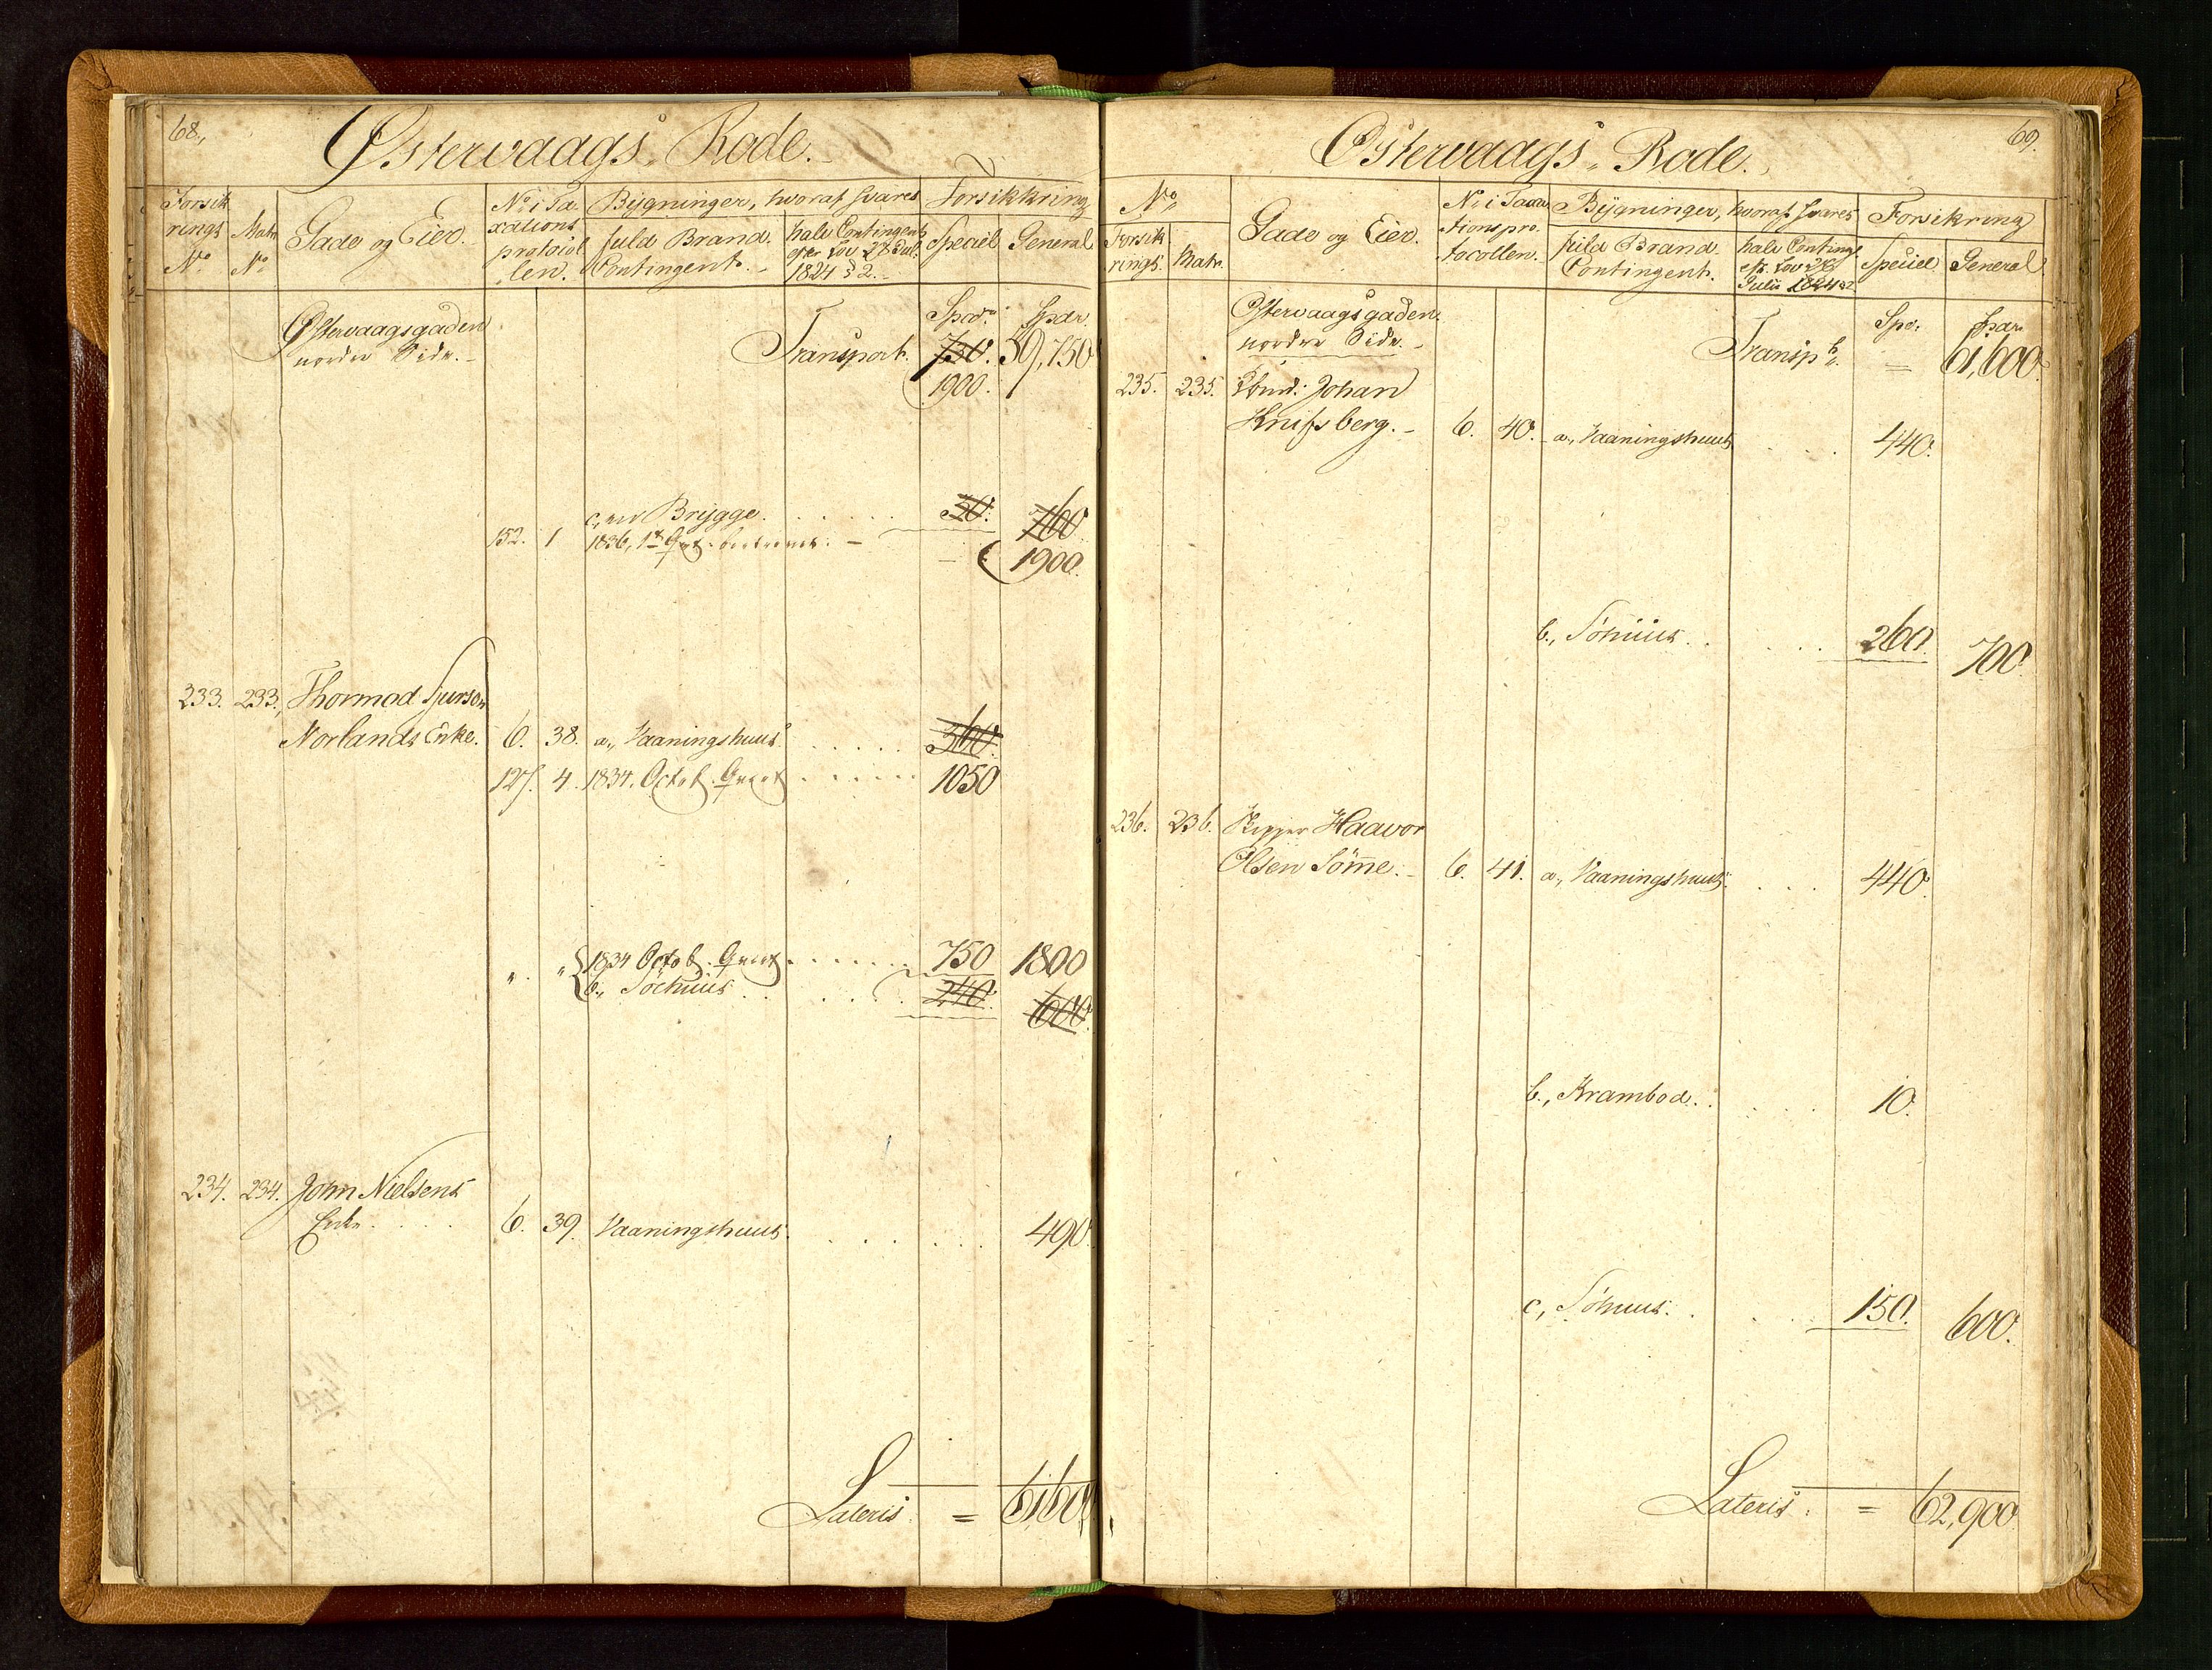 68.,
Østervaags Rode.
Forsik
rings
No
Matr
No
Gade og Eier.
No i Ta
xations
protocol
len.
Bygninger, hvoraf svares
fuld Brand.
Contingent.
halv Contingent
efter Lov 27 Jul:
1824 § 2.
Forsikkring
Speciel
General
Østervaagsgaden
nordre Side.
Transport.
Spdr.
730.
1900.
Spdr.
59,750
c, en Brygge. 50. 760
152. 1 1836, 1ste
1900.
233. 233., Thormod Sjurson
Norlands Enke. 6. 38. a., Vaaningshuus. 360.
127. 4. 1834. Octob. Qvart. 1050
" " 1834 Octob. Qvart. 750 1800
b., Søehuus. 240. 600.
234. 234. John Nielsens
Enke. 6. 39. Vaaningshuus. 490.
Lateris = 61,600
69.
Østervaags Rode.
No
Forsik
rings
Matr.
Gade og Eier.
No i Taxa
tionspro
tocollen.
Bygninger, hvoraf svares
fuld Brand
Contingent.
halv Conting.
eft. Lov 27
Julii 1824 § 2
Forsikring
Speciel
General
Østervaagsgaden.
nordre Side.
Spdr.
Spdr.
Transpt. = 61,600.
235. 235. Johan
Knifsberg. 6. 40. a., Vaaningshuus 440.
b., Søhuus. 260. 700.
236. 236. Skipper Haavor
Olsen Sømme. 6. 41. a., Vaaningshuus. 440.
b., Krambod. 10.
c, Søhuus. 150. 600.
Lateris. = 62,900.